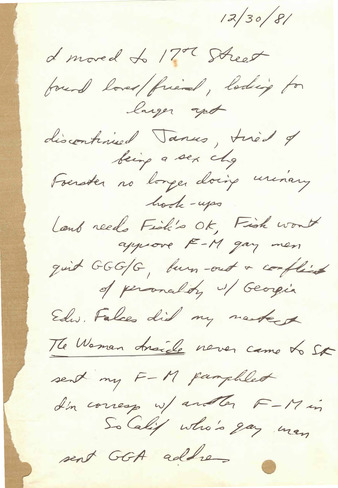 12/30/81
I moved to 17th Street
found lover/friend, looking for
larger apt
discontinued Janus, tired of
being a sex chg
Foerster no longer doing urinary
hook-ups
Laub needs Fisk's OK, Fisk won't
approve F-M gay men
quit GGG/G, burn-out & conflict
of personality w/ Georgia
Edw. Falces did my mastect
The Woman Inside never came to SF
sent my F-M pamphlet
I'm corresp w/ another F-M in
So Calif who's gay man
sent GGA address